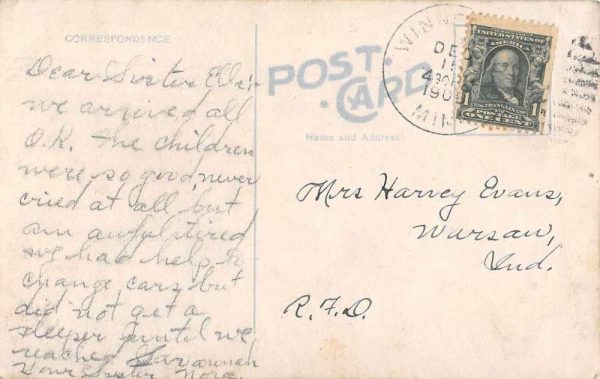 CORRESPONDENCE
Dear Sister Ella:
we arrived all
O.K. The children
were so good, never
cried at all but
am awful tired
we had help to
change cars but
did not get a
sleeper until we
reached Savannah
Your Sister Nora.
POST CARD
Name and Address
DEC
17
430P
190
MINN
UNITED STATES OF AMERICA
FRANKLIN
1 POSTAGE 1
ONE CENT
Mrs Harvey Evans,
Warsaw,
Ind.
R.F.D.